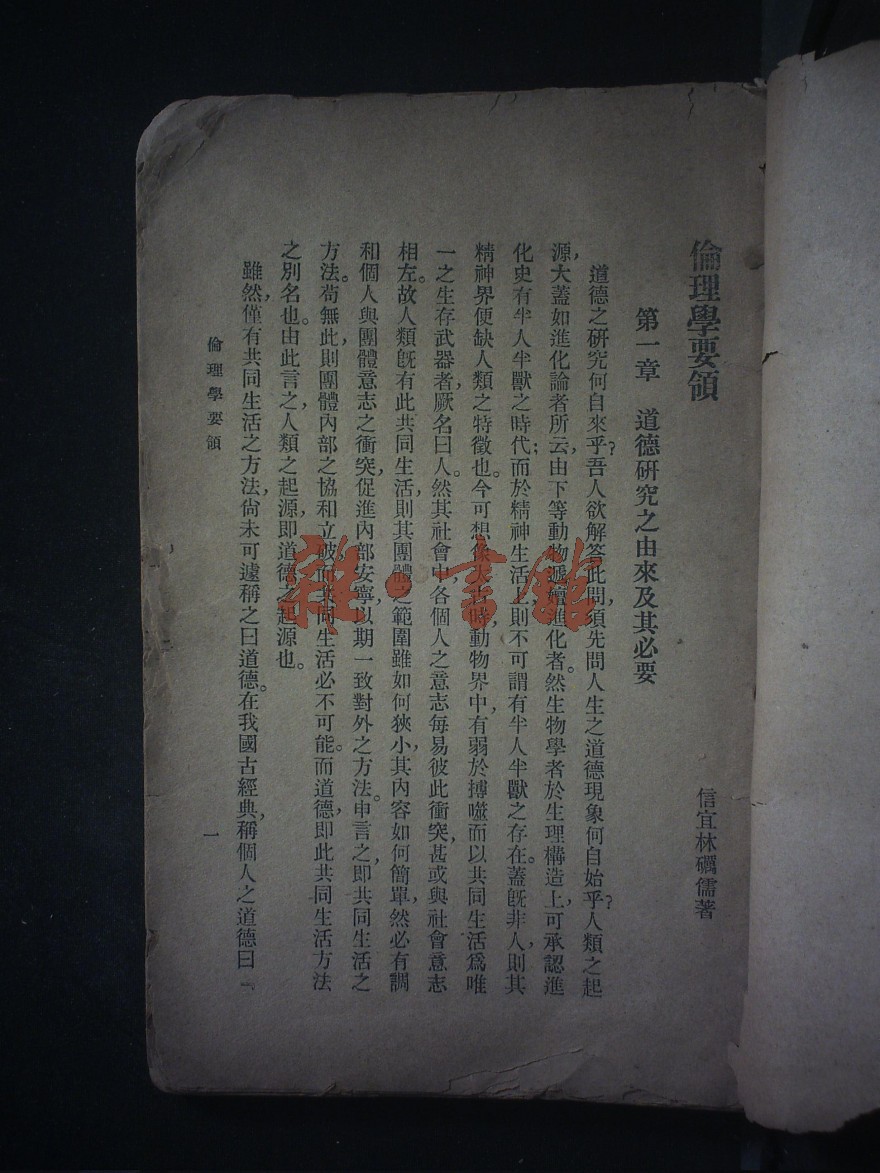 倫理學要領
第一章　道德研究之由來及其必要
信宜林礪儒著
道德之研究何自來乎?吾人欲解答此問,須先問人生之道德現象何自始乎?人類之起
源,大蓋如進化論者所云,由下等動物遞嬗進化者。然生物學者於生理構造上,可承認進
化史有半人半獸之時代;而於精神生活上則不可謂有半人半獸之存在。蓋既非人,則其
精神界便缺人類之特徵也。今可想像太古時,動物界中,有弱於搏噬而以共同生活爲唯
一之生存武器者,厥名曰人。然其社會中,各個人之意志每易彼此衝突,甚或與社會意志
相左。故人類既有此共同生活,則其團體之範圍雖如何狹小,其內容如何簡單,然必有調
和個人與團體意志之衝突,促進內部安寧,以期一致對外之方法。申言之,即共同生活之
方法。苟無此,則團體內部之協和立破,而共同生活必不可能。而道德,即此共同生活方法
之別名也。由此言之,人類之起源,即道德之起源也。
雖然,僅有共同生活之方法,尚未可遽稱之曰道德。在我國古經典,稱個人之道德曰『
倫理學要領
一
雜·書館